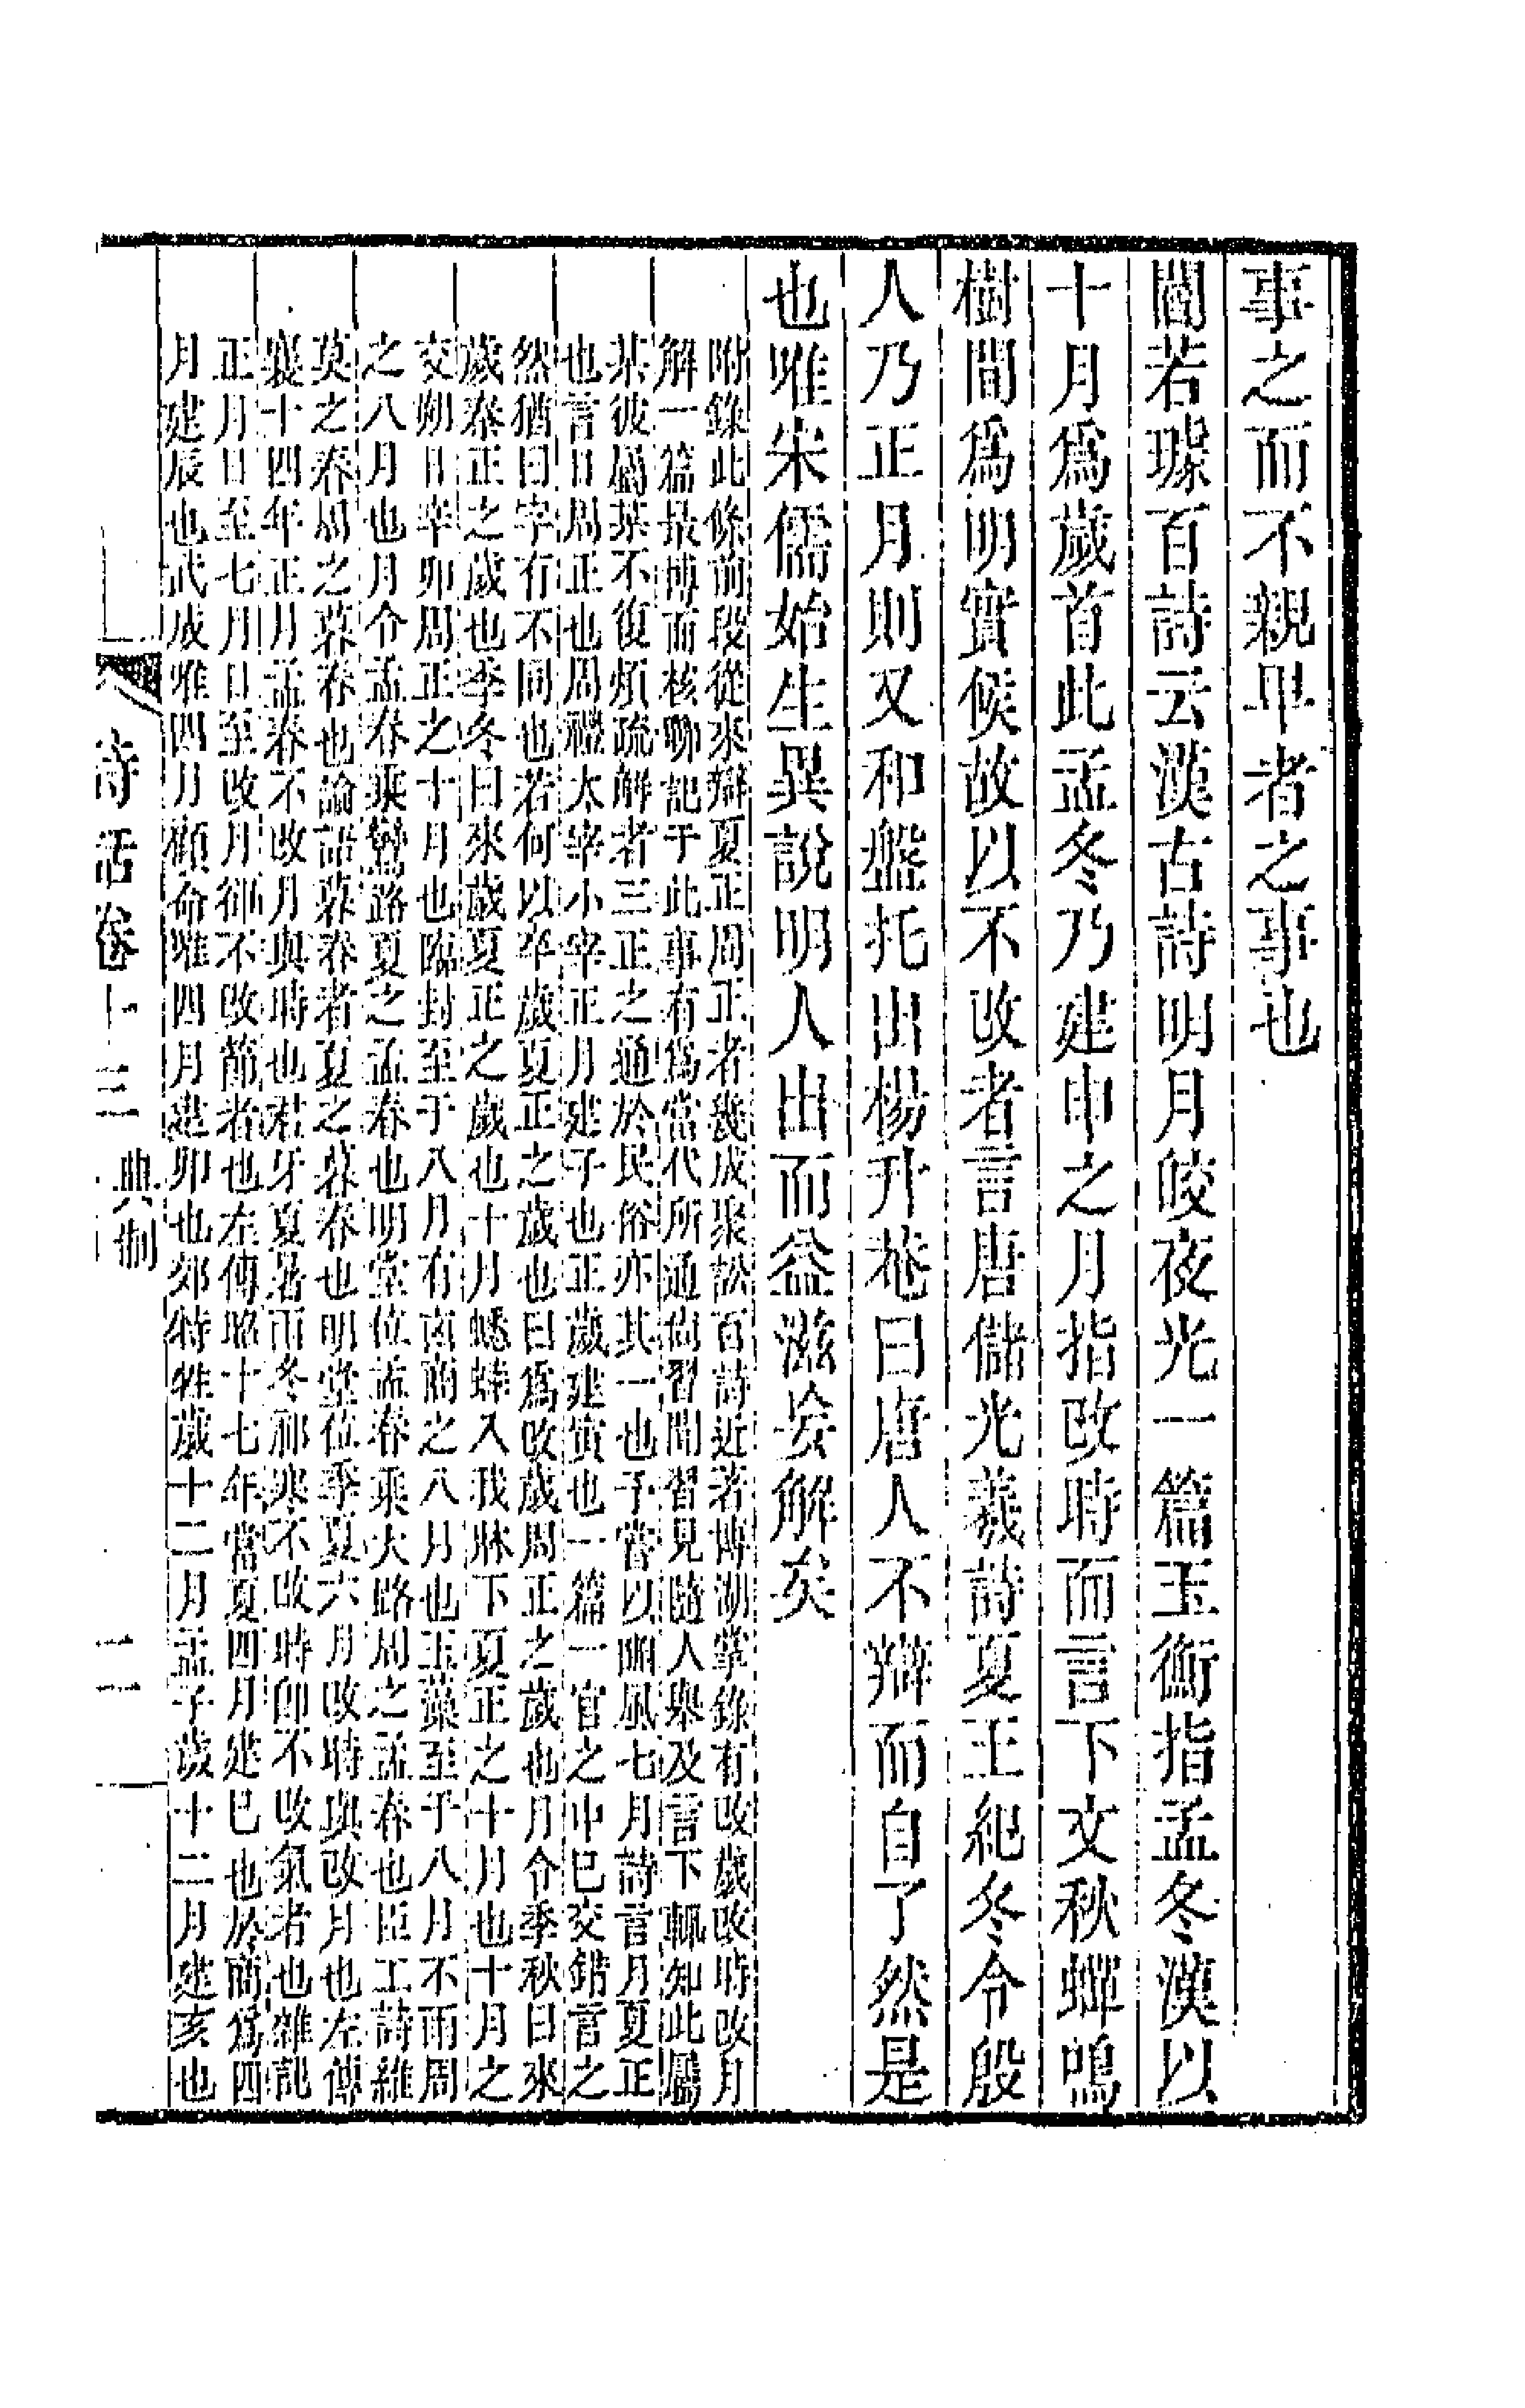 事之而不親早者之事也
閻若璩百詩云漢古詩明月皎夜光一篇玉衡指孟冬漢以
十月爲歲首此孟冬乃建申之月指改時而言下文秋蟬鳴
樹間爲明實候故以不改者言唐儲光羲詩夏王紀冬令殷
人乃正月則又和盤托出楊升菴曰唐人不辯而自了然是
也唯宋儒始生異說明人出而益滋妄解矣
附錄此條前段從來辯夏正周正者幾成聚訟百詩近著博湖掌錄有改歲改時改月
解一篇最博而核聊記于此事有爲當代所通尙習聞習見隨人舉及言下輒知此屬
某彼屬某不復煩疏解者三正之通於民俗亦其一也予嘗以豳風七月詩言月夏正
也言日周正也周禮太宰小宰正月建子也正歲建寅也一篇一官之中已交錯言之
然猶曰字有不同也若何以卒歲夏正之歲也曰爲改歲周正之歲也月令季秋日來
歲秦正之歲也季冬日來歲夏正之歲也十月蟋蟀入我牀下夏正之十月也十月之
交朔日辛卯周正之十月也臨封至于八月有凶商之八月也玉藻至于八月不雨周
之八月也月令孟春乘鸞路夏之孟春也明堂位孟春乘大路周之孟春也臣工詩維
莫之春周之暮春也論語暮春者夏之暮春也明堂位季夏六月改時與改月也左傳
襄十四年正月孟春不改月與時也君牙夏暑雨冬祁寒不改時卽不改氣者也雜記
正月日至七月日至改月御不改節者也左傳昭十七年當夏四月建巳也於商爲四
月建辰也武成維四月顧命唯四月建卯也郊特牲歲十二月孟子歲十二月建亥也
詩話卷十三 典制 二